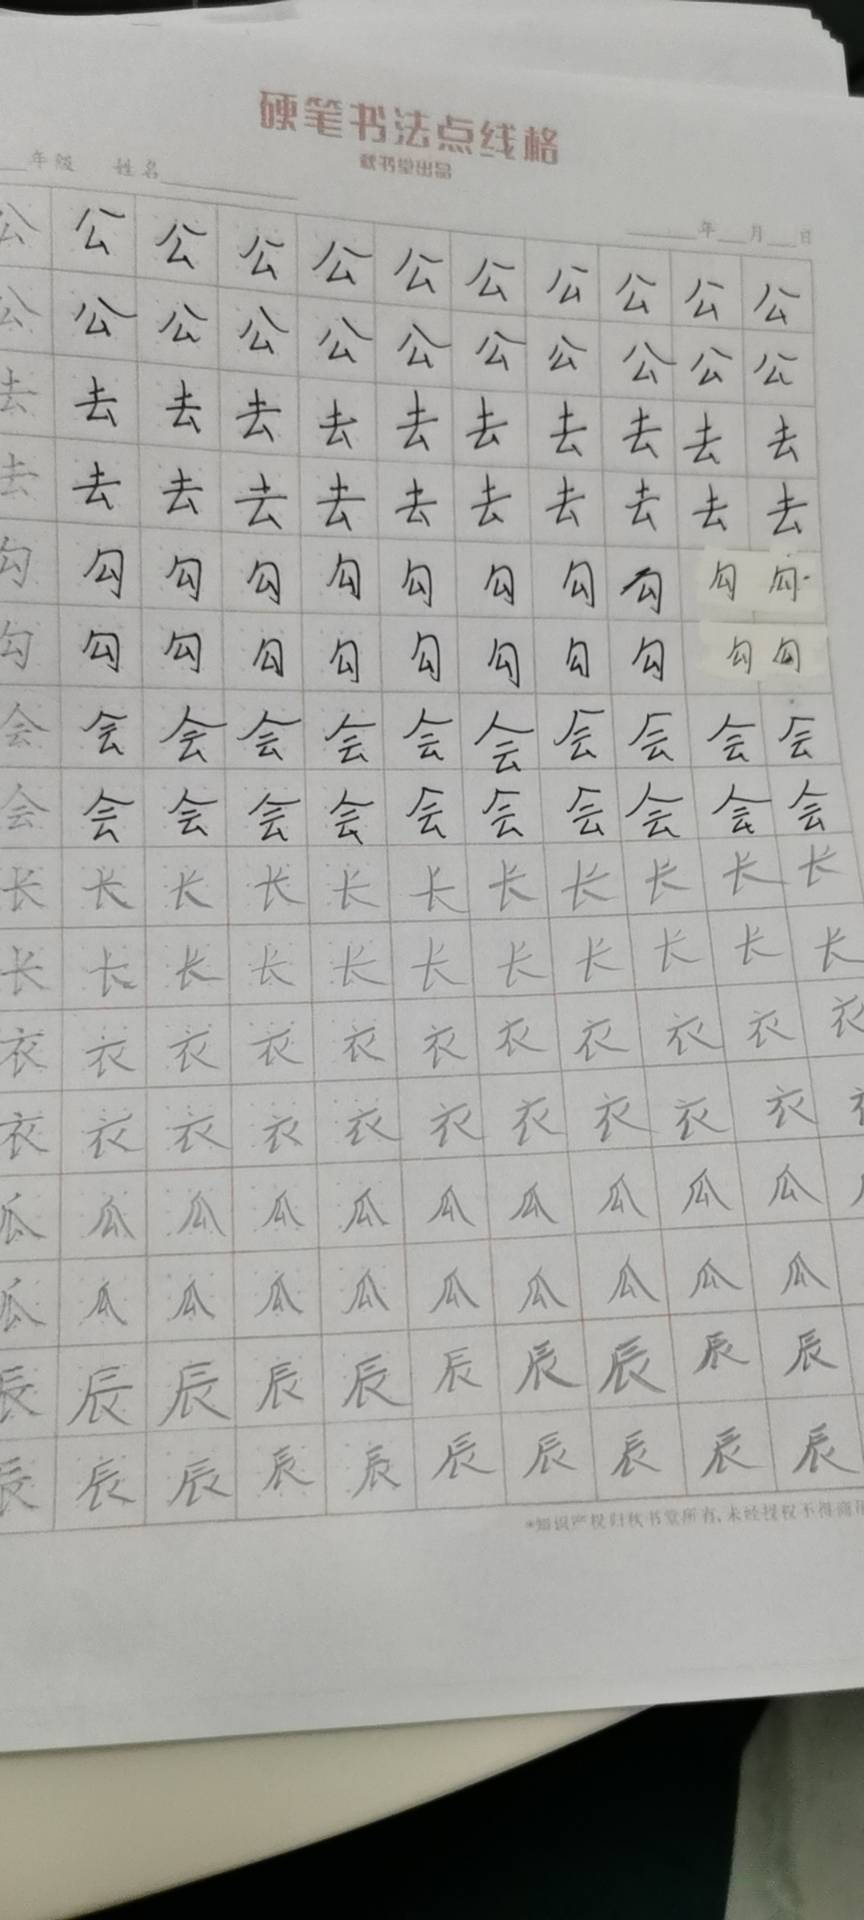 硬笔书法点线格
秋书堂出品
年级 姓名
年 月 日
公 公 公 公 公 公 公 公 公 公 公
公 公 公 公 公 公 公 公 公 公 公
去 去 去 去 去 去 去 去 去 去 去
去 去 去 去 去 去 去 去 去 去 去
勾 勾 勾 勾 勾 勾 勾 勾 勾 勾 勾
勾 勾 勾 勾 勾 勾 勾 勾 勾 勾 勾
会 会 会 会 会 会 会 会 会 会 会
会 会 会 会 会 会 会 会 会 会 会
长 长 长 长 长 长 长 长 长 长 长
长 长 长 长 长 长 长 长 长 长 长
衣 衣 衣 衣 衣 衣 衣 衣 衣 衣 衣
衣 衣 衣 衣 衣 衣 衣 衣 衣 衣
瓜 瓜 瓜 瓜 瓜 瓜 瓜 瓜 瓜 瓜
瓜 瓜 瓜 瓜 瓜 瓜 瓜 瓜 瓜 瓜
辰 辰 辰 辰 辰 辰 辰 辰 辰 辰
辰 辰 辰 辰 辰 辰 辰 辰 辰 辰
*知识产权归秋书堂所有,未经授权不得商用